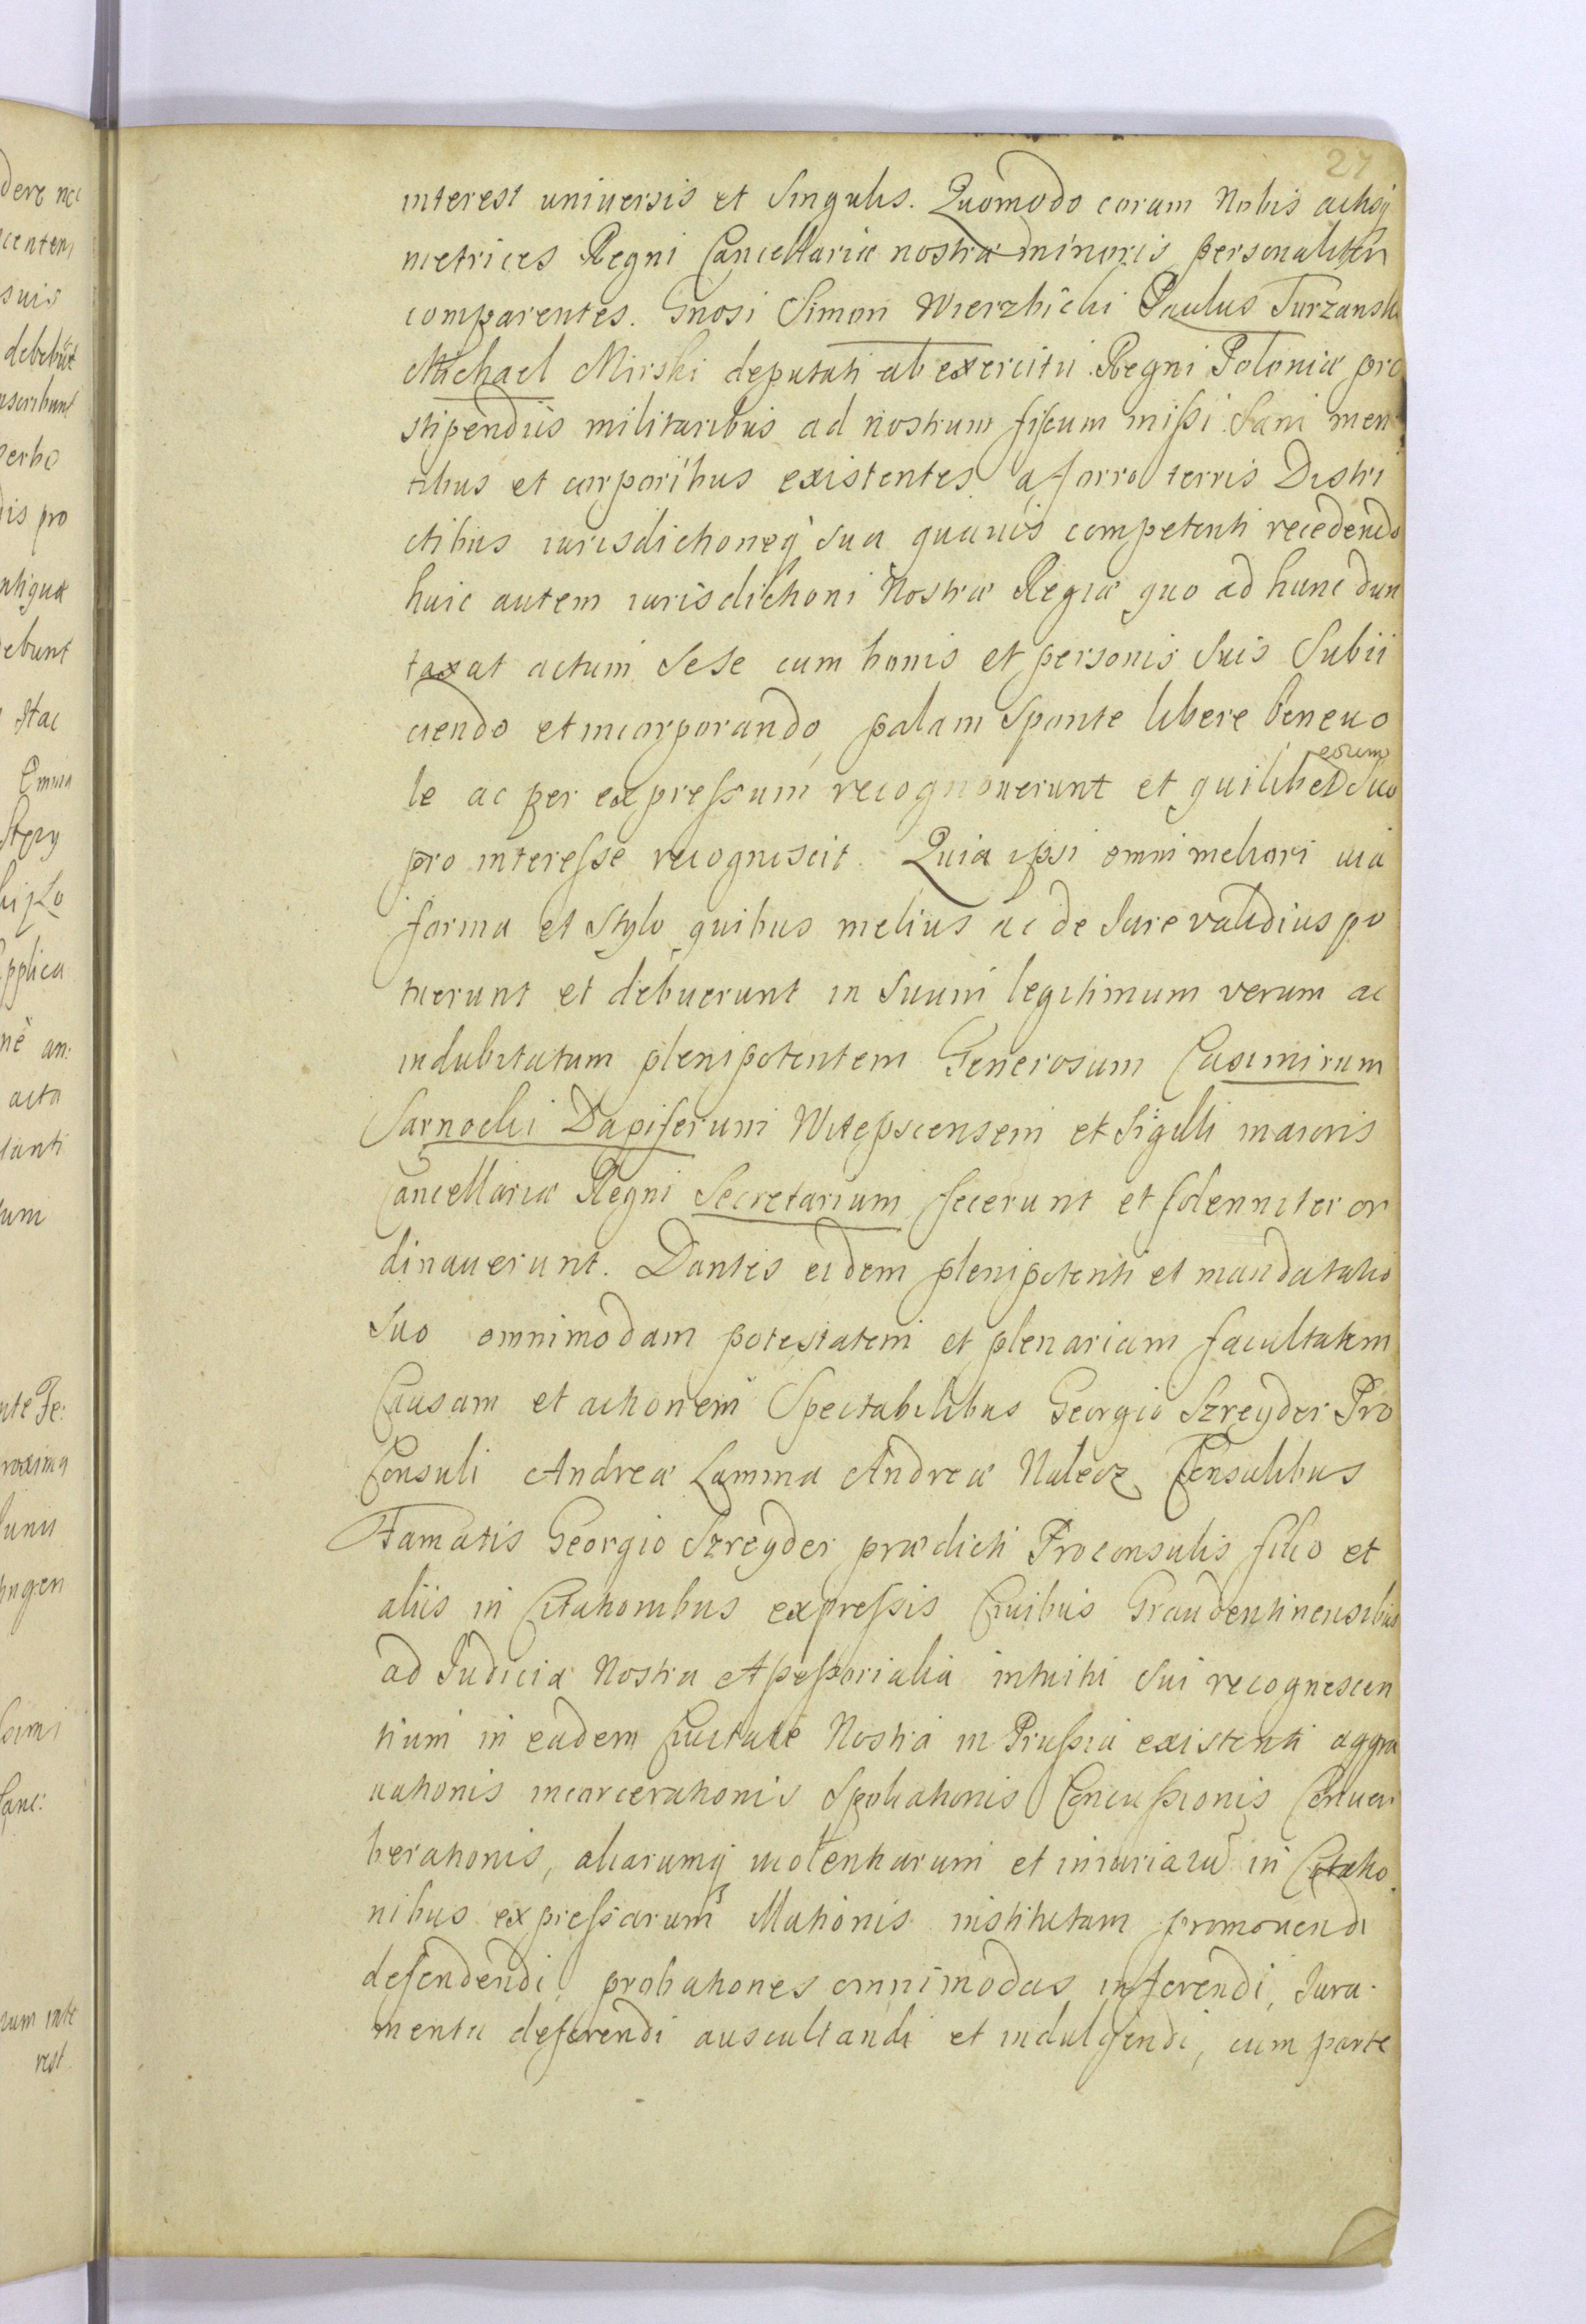 27
interest universis et Singulis. Quomodo coram Nobis actisq
metrices Regni Cancellariæ nostræ minoris personaliter
comparentes. Gnosi Simon Wierzbicki Paulus Turzanski
Michael Mirski deputati ab exercitu Regni Poloniæ pro
stipendiis militaribus ad nostrum fiscum missi Sani men
tibus et corporibus existentes a forro terris Distri
ctibus iurisdictioneq sua quavis competenti recedendo
huic autem iurisdictioni Nostræ Regiæ quo ad hunc dun
taxat actum sese cum bonis et personis suis Subii
ciendo et incorporando, palam Sponte libere benevo
le ac per expressum recognoverunt et quilibet eorum suo
pro interesse recognoscit. Quia ipsi omni meliori via
forma et Stylo quibus melius ac de Iure validius po
tuerunt et debuerunt in suum legitimum verum ac
indubitatum plenipotentem Generosum Casimirum
Sarnocki Dapiferum Witepscensem et Sigilli maioris
Cancellariæ Regni Secretarium fecerunt et solenniter or
dinauerunt. Dantes eidem plenipotenti et mandatario
Suo omnimodam potestatem et plenariam facultatem
Causam et actionem Spectabilibus Georgio Szreyder Pro
Consuli Andreæ Lamma Andreæ Nalecz Consulibus
Famatis Georgio Szreyder prædicti Proconsulis filio et
aliis in Citationibus expressis Civibus Graudentinensibus
ad Iudicia Nostra Assessorialia intuitu sui recognoscen
tium in eadem Civitate Nostra in Prussia existenti aggra
vationis incarcerationis Spoliationis Concussionis Conver
berationis, aliarumq violentiarum et iniuriarū in Citatio
nibus expressarum Mationis institutam promovendi
defendendi, probationes omnimodas inferendi, Iura-
menta deferendi auscultandi et indulgendi, cum parte